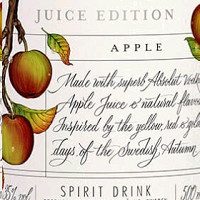 JUICE EDITION
APPLE
Made with superb Absolut Vodka
Apple Juice & natural flavor
Inspired by the yellow, red & gold
days of the Swedish Autumn
SPIRIT DRINK